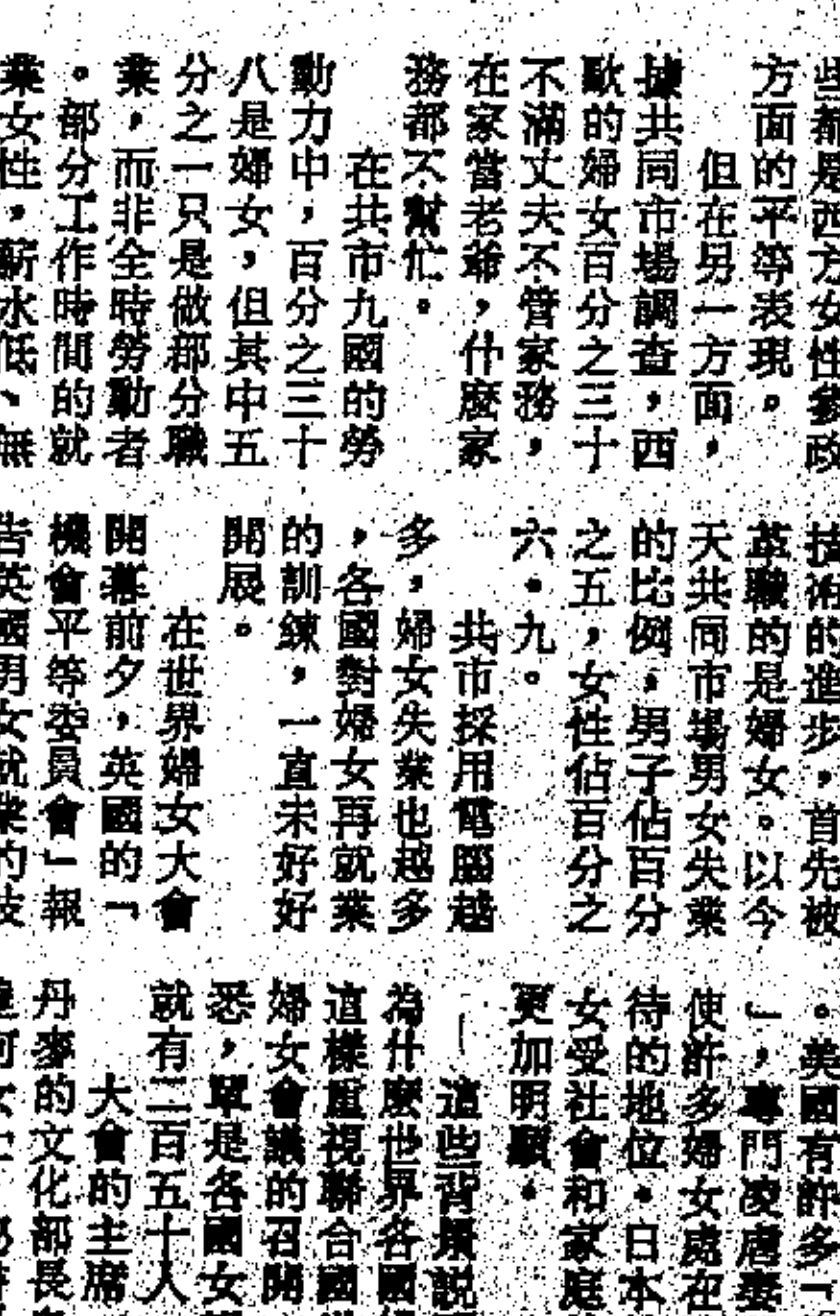 些都是西方女性參政
方面的平等表現。
但在另一方面，
據共同市場調查，西
歐的婦女百分之三十
不滿丈夫不管家務，
在家當老爺，什麼家
務都不幫忙。
在共市九國的勞
動力中，百分之三十
八是婦女，但其中五
分之一只是做部分職
業，而非全時勞動者
。部分工作時間的就
業女性，薪水低、無
技術的進步，首先被
革職的是婦女。以今
天共同市場男女失業
的比例，男子佔百分
之五，女性佔百分之
六．九。
共市採用電腦越
多，婦女失業也越多
，各國對婦女再就業
的訓練，一直未好好
開展。
在世界婦女大會
開幕前夕，英國的「
機會平等委員會」報
告英國男女就業的技
。美國有許多「
」，專門凌虐妻
使許多婦女處在
待的地位。日本
女受社會和家庭
更加明顯．
這些背景說
為什麼世界各國
這樣重視聯合國
婦女會議的召開
悉，單是各國女
就有二百五十人
大會的主席
丹麥的文化部長